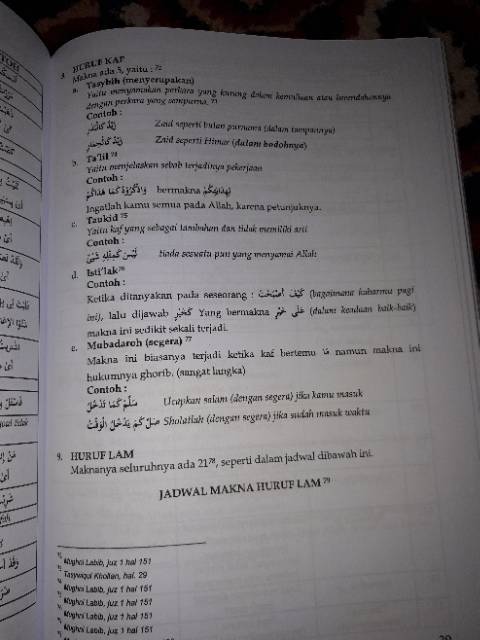 HURUF KAF
Makna ada 5, yaitu : 72
a. Tasybih (menyerupakan)
Yaitu menyamakan perkara yang kurang dalam kemuliaan atau kerendahannya
dengan perkara yang sempurna. 73
Contoh :
زَيْدٌ كَالْبَدْرِ Zaid seperti bulan purnama (dalam tampannya)
زَيْدٌ كَالْحِمَارِ Zaid seperti Himar (dalam bodohnya)
b. Ta'lil 74
Yaitu menjelaskan sebab terjadinya pekerjaan
Contoh :
وَاذْكُرُوْهُ كَمَا هَدَاكُمْ bermakna لِهِدَايَتِكُمْ
Ingatlah kamu semua pada Allah, karena petunjuknya.
c. Taukid 75
Yaitu kaf yang sebagai tambahan dan tidak memiliki arti
Contoh :
لَيْسَ كَمِثْلِهِ شَيْئٌ tiada sesuatu pun yang menyamai Allah
d. Isti'lak 76
Contoh :
Ketika ditanyakan pada seseorang : كَيْفَ أَصْبَحْتَ (bagaimana kabarmu pagi
ini), lalu dijawab كَخَيْرٍ Yang bermakna عَلَى خَيْرٍ (dalam keadaan baik-baik)
makna ini sedikit sekali terjadi.
e. Mubadaroh (segera) 77
Makna ini biasanya terjadi ketika kaf bertemu مَا namun makna ini
hukumnya ghorib. (sangat langka)
Contoh :
سَلِّمْ كَمَا تَدْخُلُ Ucapkan salam (dengan segera) jika kamu masuk
صَلِّ كَمَا يَدْخُلُ الْوَقْتُ Sholatlah (dengan segera) jika sudah masuk waktu
9. HURUF LAM
Maknanya seluruhnya ada 21 78, seperti dalam jadwal dibawah ini.
JADWAL MAKNA HURUF LAM 79
Mughni Labib, juz 1 hal 151
Tasywiqul Khollan, hal. 29
Mughni Labib, juz 1 hal 151
Mughni Labib, juz 1 hal 151
Mughni Labib, juz 1 hal 151
Mughni Labib, juz 1 hal 151